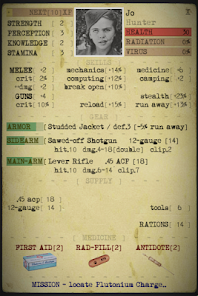 NEXT[10]XP Jo X
Hunter
STRENGTH [ 2 ]
PERCEPTION [ 3 ] HEALTH 30
KNOWLEDGE [ 2 ] RADIATION
STAMINA [ 3 ] VIRUS
SKILLS
MELEE -2 mechanics[+14% medicine[-6
crit[ 24% computing[+12% camping[
+dmg[ +2 break open[+10%
GUNS -4 stealth[+23%
crit[ 10% reload[+15% run away[+13%
GEAR
ARMOR [ Studded Jacket / def.3 [-5% run away]
SIDEARM [ Sawed-off Shotgun 12-gauge [14]
hit.10 dmg.4-18[double] clip.2
MAIN-ARM[ Lever Rifle .45 ACP [18]
hit.10 dmg.6-14 clip.7
[ SUPPLY ]
.45 acp[ 18]
12-gauge[ 14] tools[ 6
RATIONS[ 14]
[ MEDICINE ]
FIRST AID[2] RAD-FILL[2] ANTIDOTE[2]
MISSION - locate Plutonium Charge..